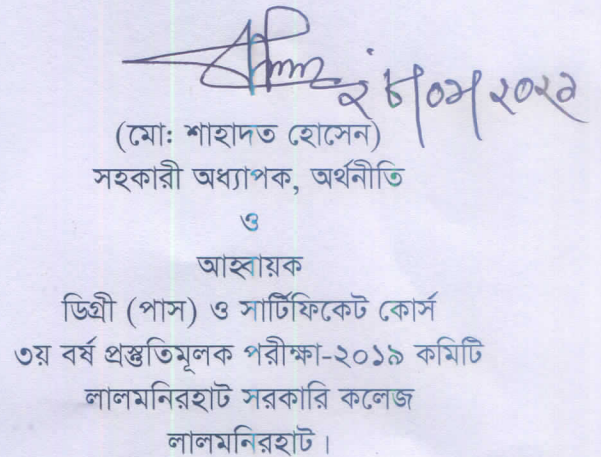 ২৮/০৯/২০২১
(মো: শাহাদত হোসেন)
সহকারী অধ্যাপক, অর্থনীতি
ও
আহ্বায়ক
ডিগ্রী (পাস) ও সার্টিফিকেট কোর্স
৩য় বর্ষ প্রস্তুতিমূলক পরীক্ষা-২০১৯ কমিটি
লালমনিরহাট সরকারি কলেজ
লালমনিরহাট।